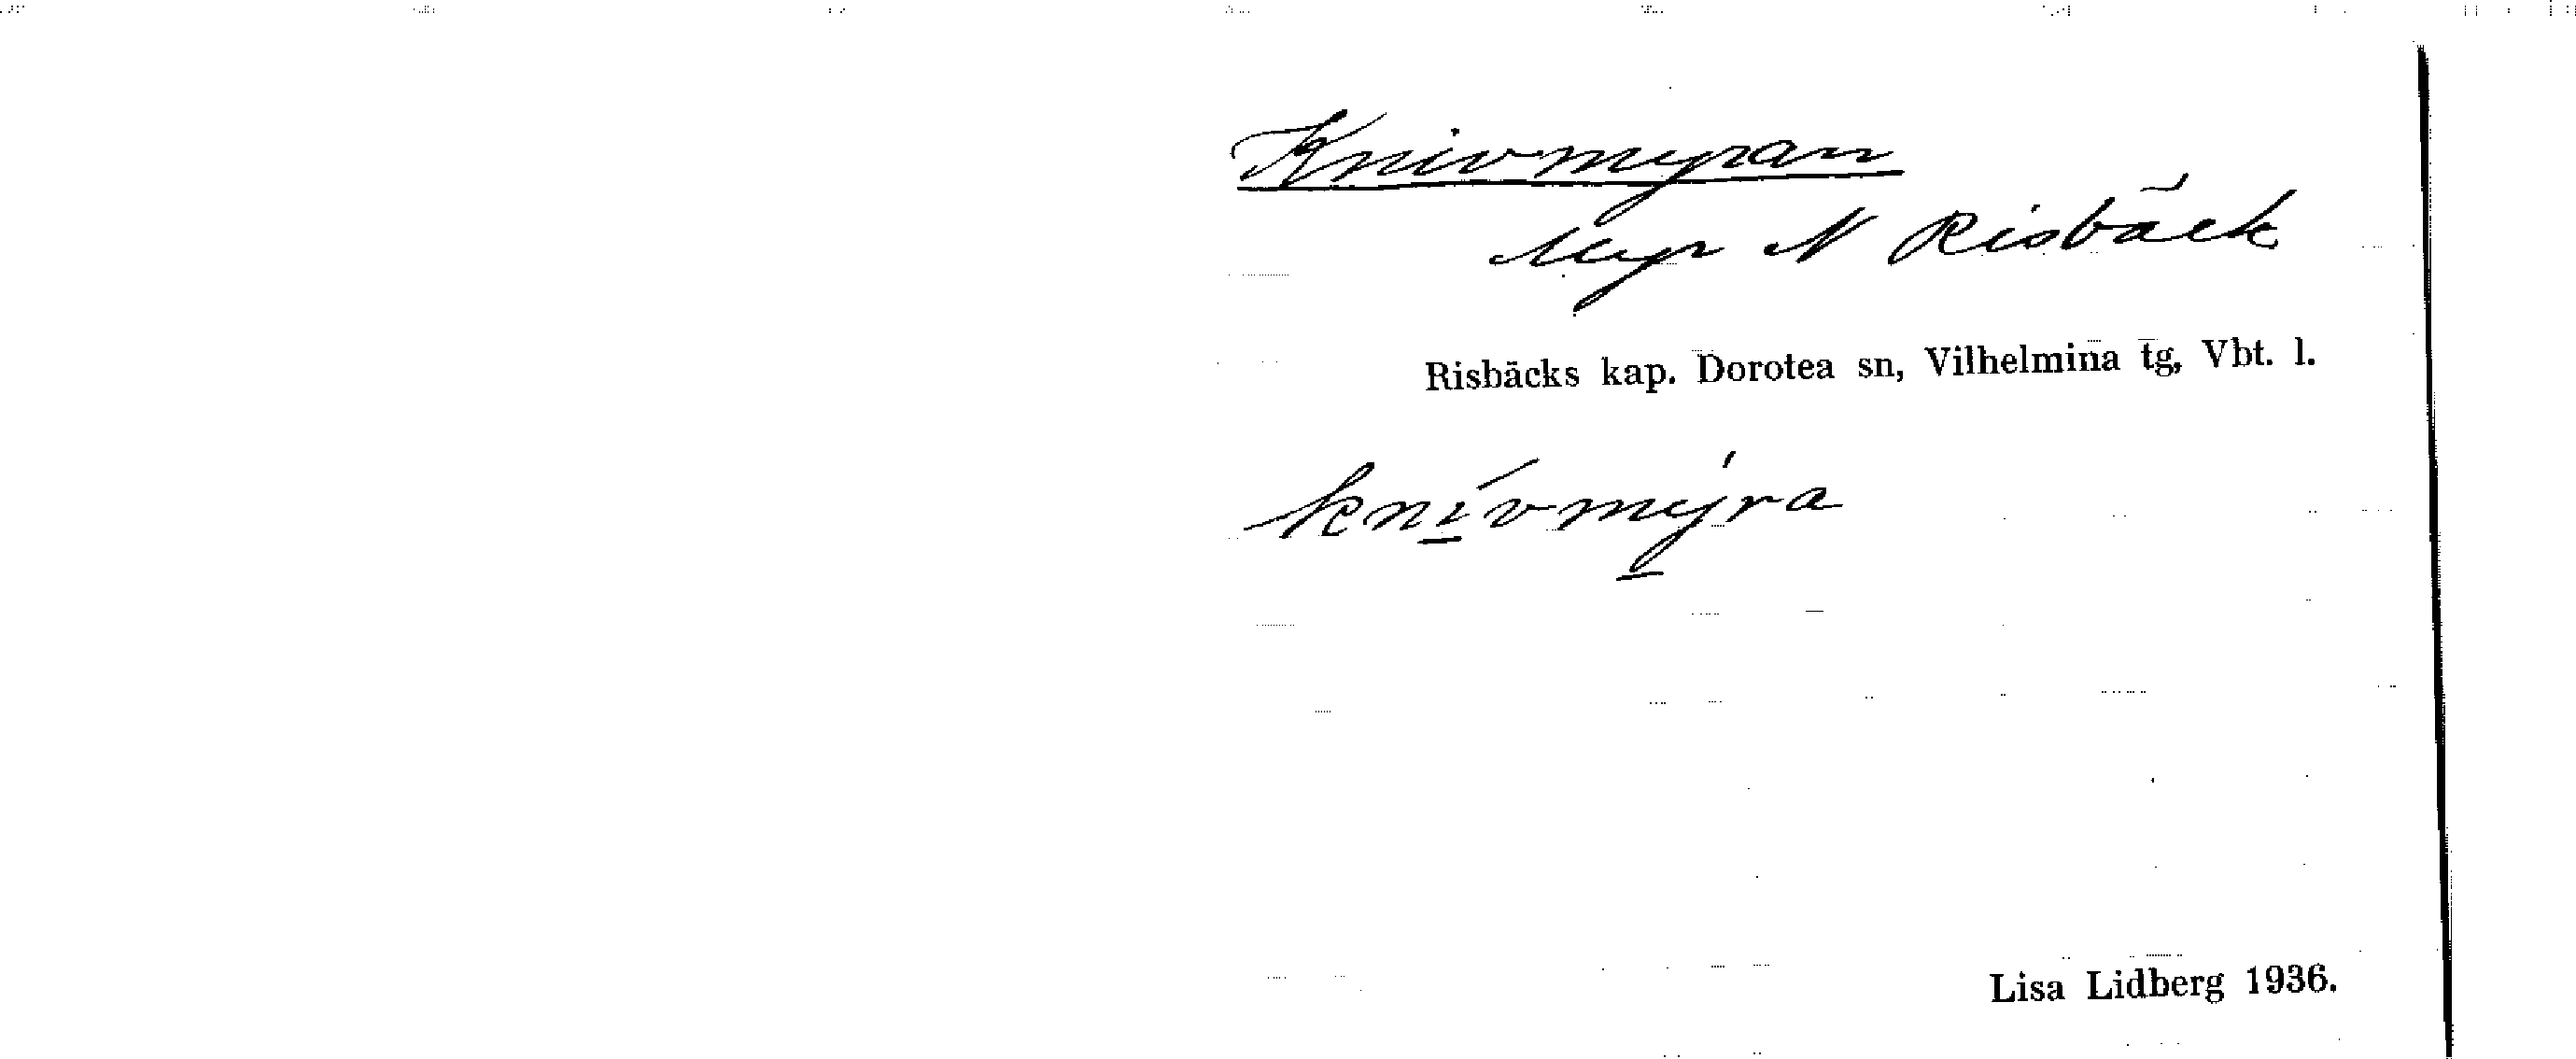 Knivmyran
Myr N Risbäck
Risbäcks kap. Dorotea sn, Vilhelmina tg, Vbt. l.
kní̱vmý̱ra
Lisa Lidberg 1936.